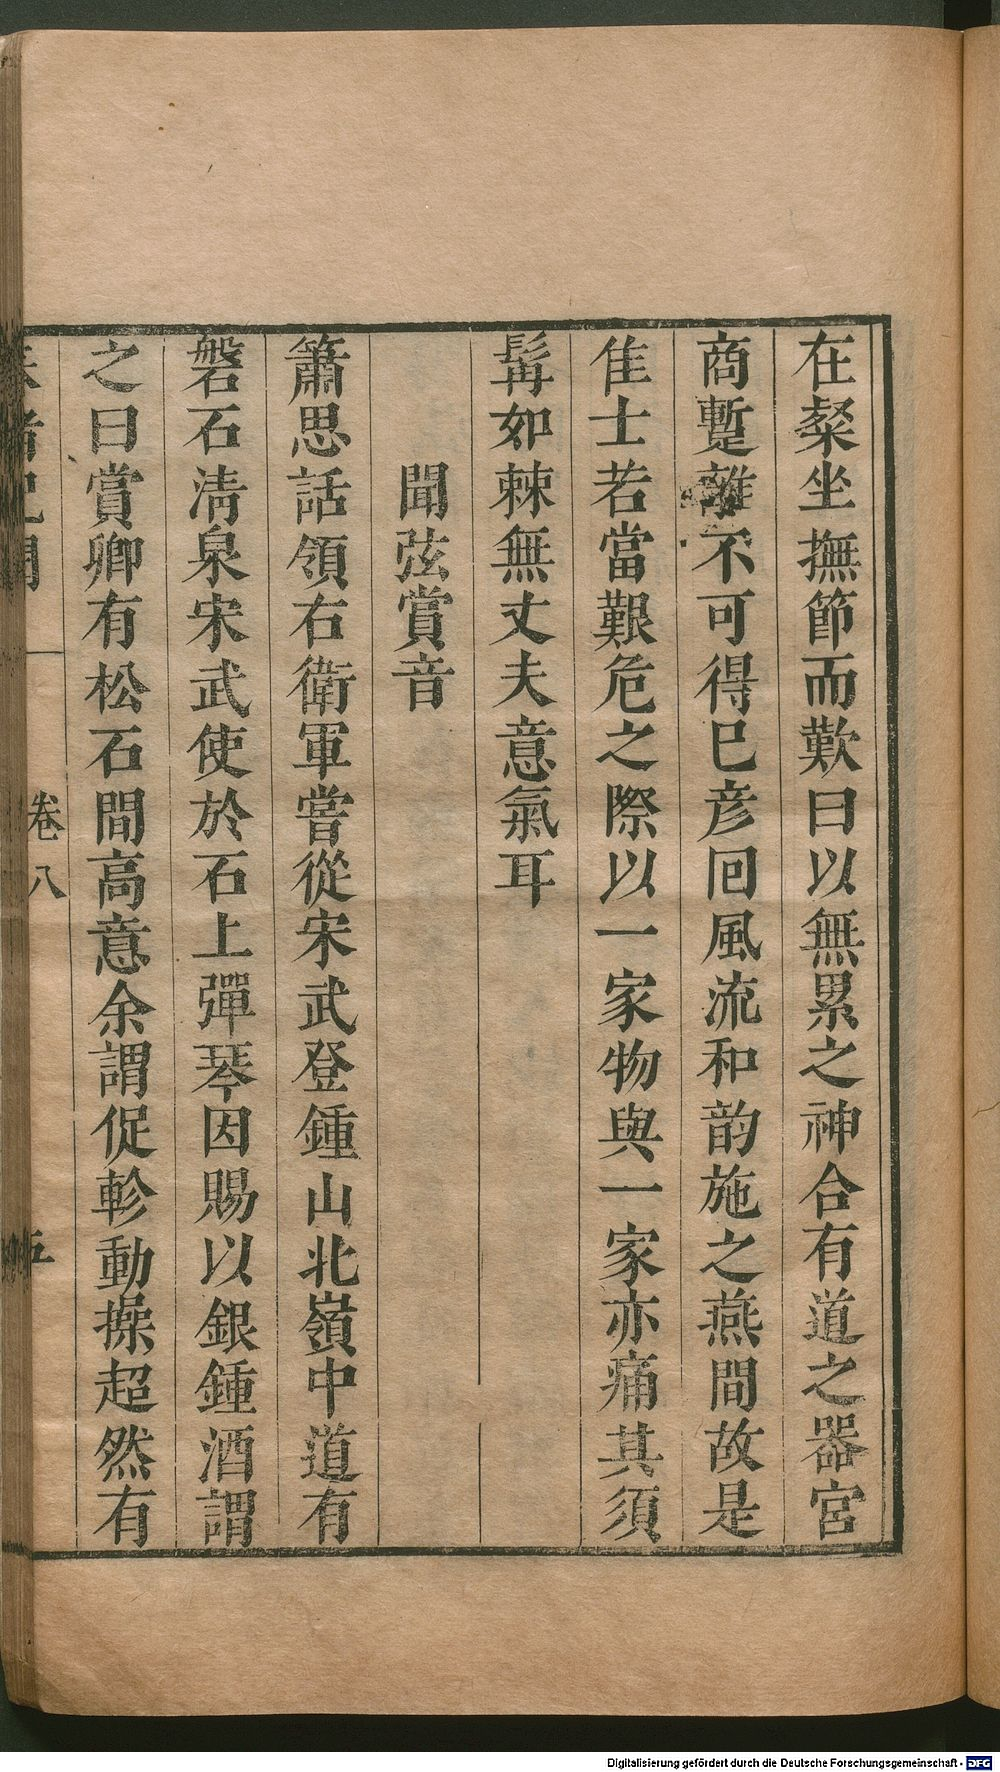 在粲坐撫節而歎曰以無累之神合有道之器宮
商蹔離不可得已彦回風流和韵施之燕間故是
佳士若當艱危之際以一家物與一家亦痛其須
髯如棘無丈夫意氣耳
聞弦賞音
蕭思話領右衛軍嘗從宋武登鍾山北嶺中道有
磐石清泉宋武使於石上彈琴因賜以銀鍾酒謂
之曰賞卿有松石間高意余謂促軫動操超然有
卷八
五
Digitalisierung gefördert durch die Deutsche Forschungsgemeinschaft - DFG